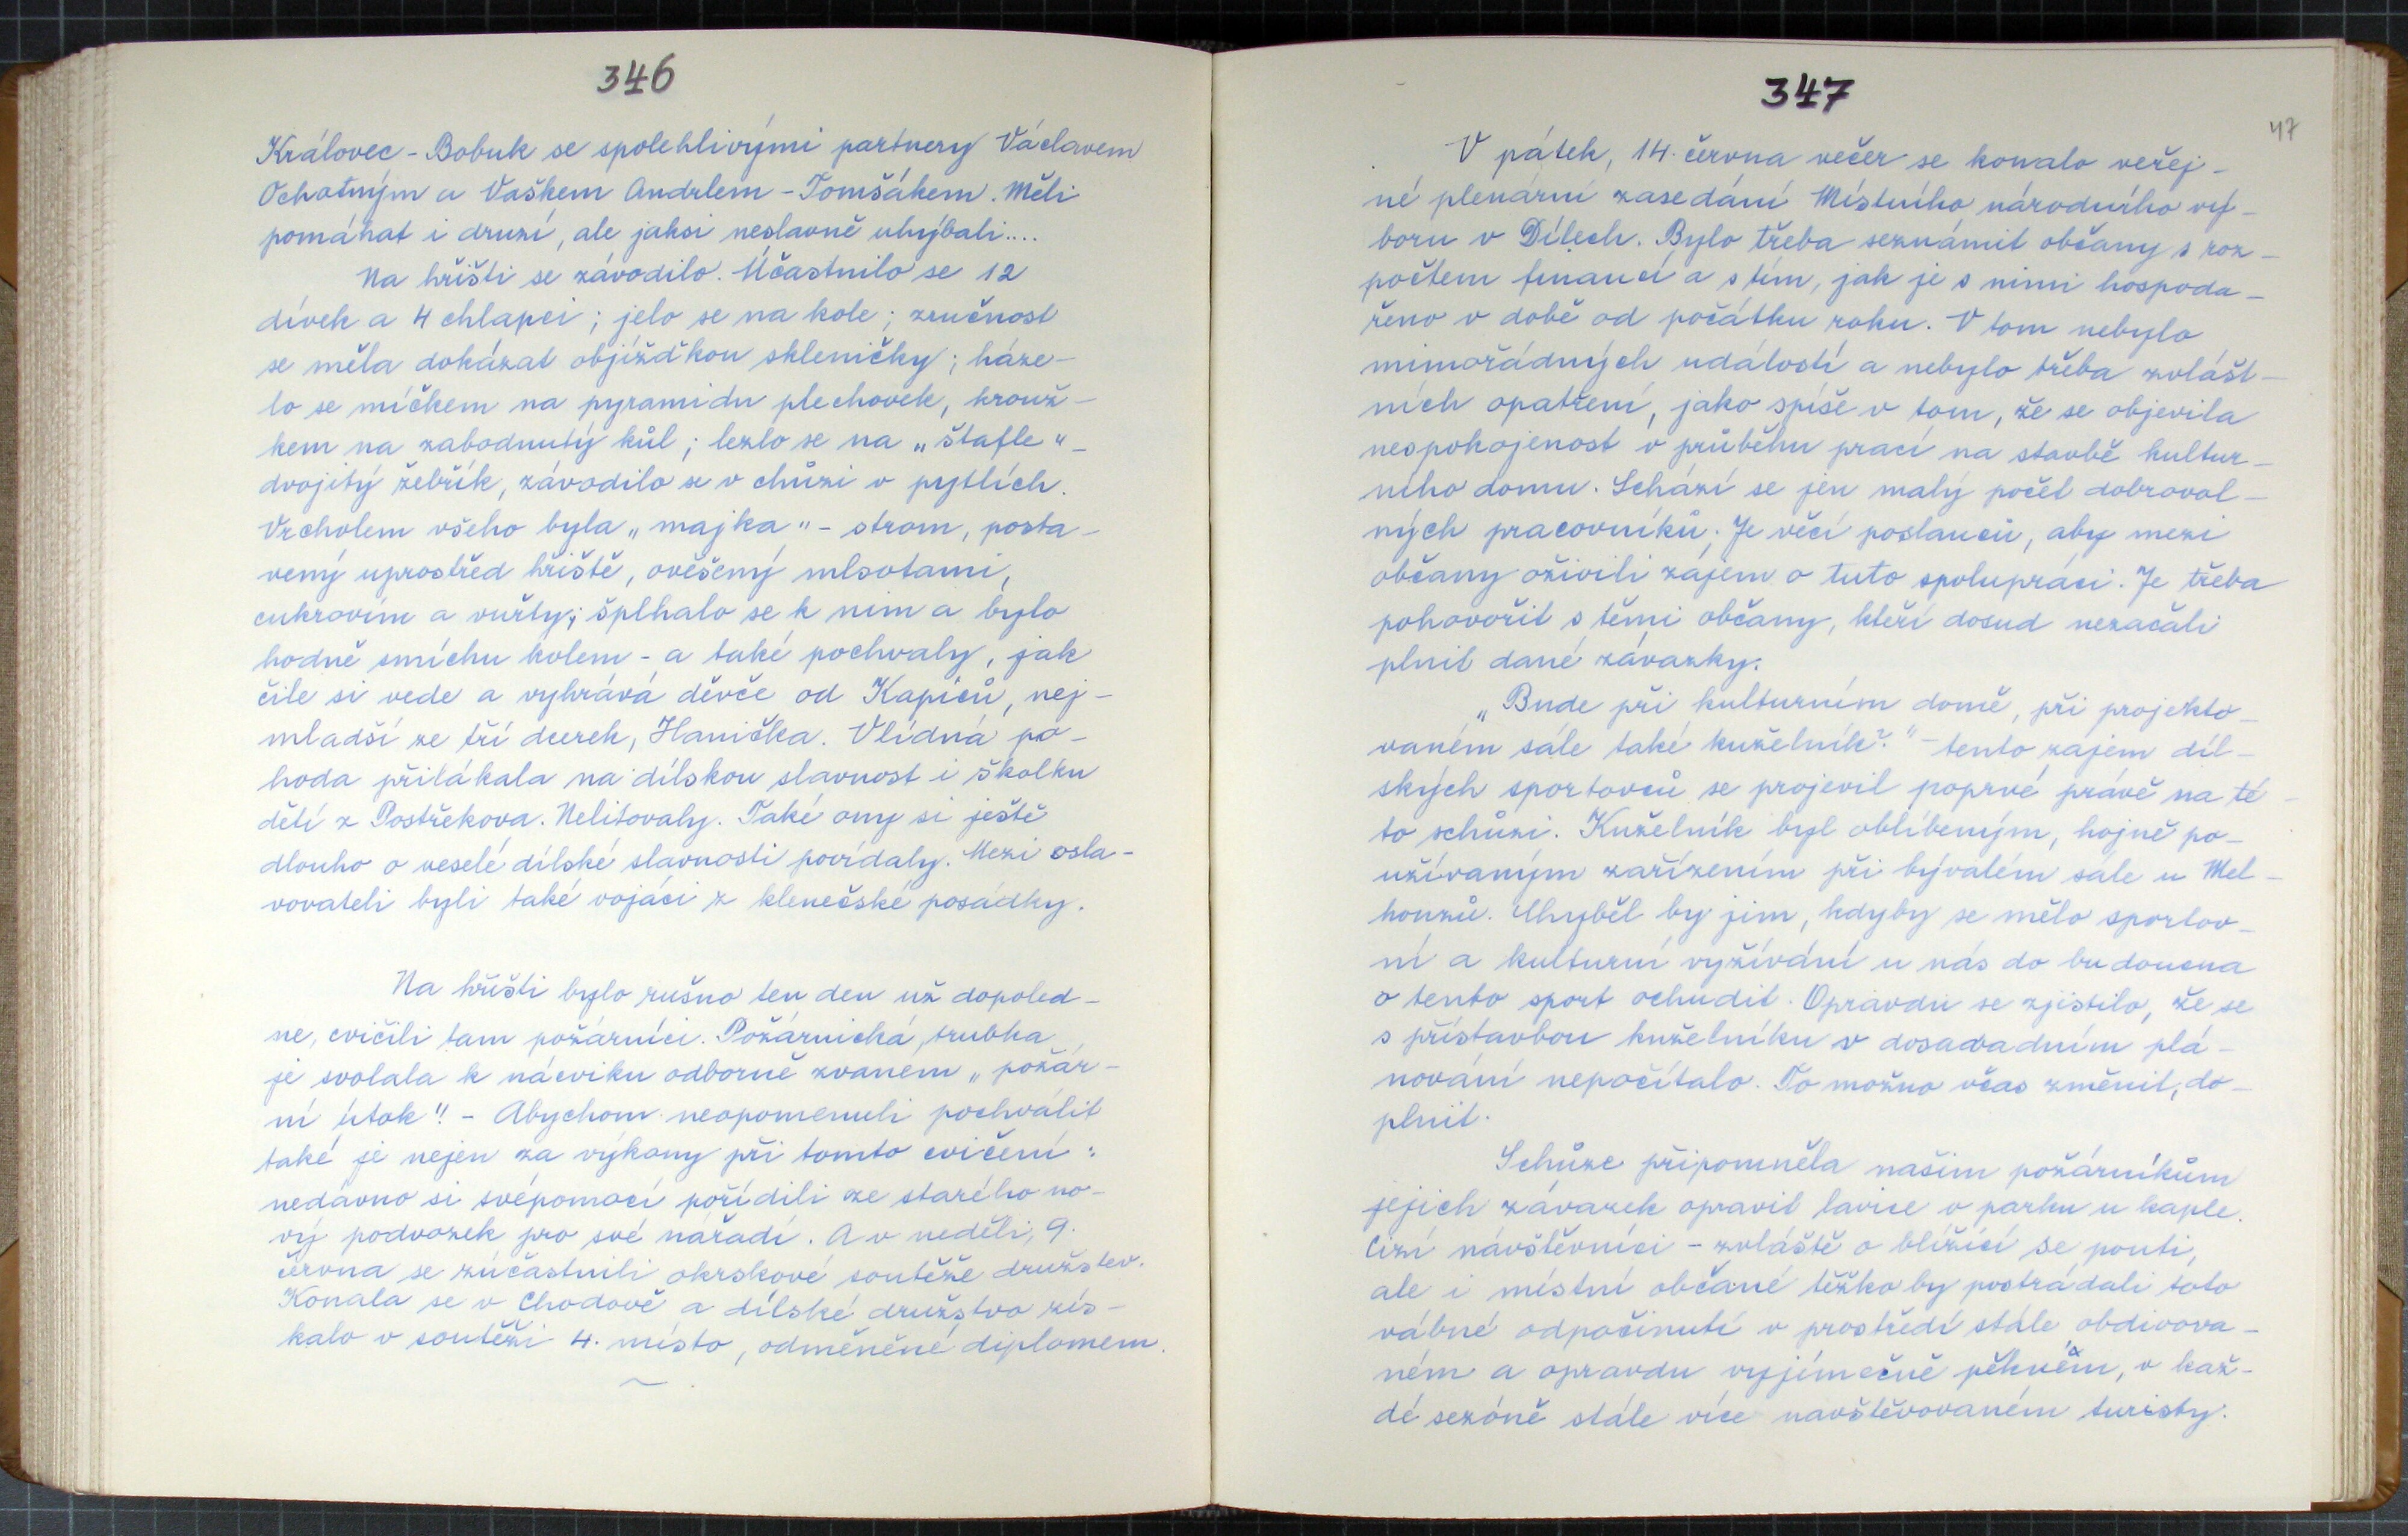 346
Královec - Bobuk se spolehlivými partnery Václavem
Ochotným a Vaškem Andrlem - Tomšákem. Měli
pomáhat i druzí, ale jaksi neslavně uhýbali....
Na hřišti se závodilo. Účastnilo se 12
dívek a 4 chlapci; jelo se na kole; zručnost
se měla dokázat objížďkou skleničky; háze-
lo se míčkem na pyramidu plechovek, krouž-
kem na zabodnutý kůl; lezlo se na „štafle" -
dvojitý žebřík, závodilo se v chůzi v pytlích.
Vrcholem všeho byla „majka" - strom, posta-
vený uprostřed hřiště, ověšený mlsotami,
cukrovím a vuřty; šplhalo se k nim a bylo
hodně smíchu kolem - a také pochvaly, jak
čile si vede a vyhrává děvče od Kapiců, nej-
mladší ze tří dcerek, Hanička. Vlídná po-
hoda přilákala na dílskou slavnost i školku
dětí z Postřekova. Nelitovaly. Také ony si ještě
dlouho o veselé dílské slavnosti povídaly. Mezi osla-
vovateli byli také vojáci z klenečské posádky.
Na hřišti bylo rušno ten den už dopoled-
ne, cvičili tam požárníci. Požárnická trubka
je svolala k nácviku odborně zvaném „požár-
ní útok". - Abychom neopomenuli pochválit
také je nejen za výkony při tomto cvičení:
nedávno si svépomocí pořídili ze starého no-
vý podvozek pro své nářadí. A v neděli, 9.
června se zúčastnili okrskové soutěže družstev.
Konala se v Chodově a dílské družstvo zís-
kalo v soutěži 4. místo, odměněné diplomem.
347
47
V pátek, 14. června večer se konalo veřej-
né plenární zasedání Místního národního vý-
boru v Dílech. Bylo třeba seznámit občany s roz-
počtem financí a s tím, jak je s nimi hospoda-
řeno v době od počátku roku. V tom nebylo
mimořádných událostí a nebylo třeba zvlášt-
ních opatření, jako spíše v tom, že se objevila
nespokojenost v průběhu prací na stavbě kultur-
ního domu. Schází se jen malý počet dobrovol-
ných pracovníků; Je věcí poslanců, aby mezi
občany oživili zájem o tuto spolupráci. Je třeba
pohovořit s těmi občany, kteří dosud nezačali
plnit dané závazky.
„Bude při kulturním domě, při projekto-
vaném sále také kuželník?" - tento zájem díl-
ských sportovců se projevil poprvé právě na té-
to schůzi. Kuželník byl oblíbeným, hojně po-
užívaným zařízením při bývalém sále u Mel-
honzů. Chyběl by jim, kdyby se mělo sportov-
ní a kulturní vyžívání u nás do budoucna
o tento sport ochudit. Opravdu se zjistilo, že se
s přístavbou kuželníku v dosavadním plá-
nování nepočítalo. To možno včas změnit, do-
plnit.
Schůze připomněla našim požárníkům
jejich závazek opravit lavice v parku u kaple.
Cizí návštěvníci - zvláště o blížící se pouti,
ale i místní občané těžko by postrádali toto
vábné odpočinutí v prostředí stále obdivova-
ném a opravdu vyjímečně pěkném, v kaž-
dé sezóně stále více navštěvovaném turisty.